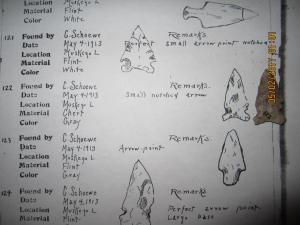 Location Muskego L
Material Flint
Color White
121 Found by C. Schoewe Remarks.
Date May 4 1913 Perfect Small arrow point notched
Location Muskego L
Material Flint
Color White
122 Found by C. Schoewe Remarks.
Date May 4 1913 Small notched arrow
Location Muskego L
Material Chert
Color Gray
123 Found by C. Schoewe Remarks.
Date May 4 1913 Arrow point
Location Muskego L
Material Flint
Color Gray
124 Found by C. Schoewe Remarks
Date May 4, 1913 Perfect arrow point
Location Muskego L Large base
Material Flint